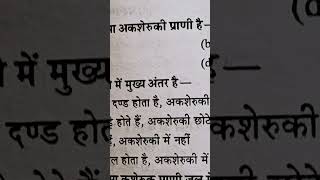 अकशेरुकी प्राणी है—
(b
(d
में मुख्य अंतर है—
दण्ड होता है, अकशेरुकी
होते हैं, अकशेरुकी छोटे
अकशेरुकी में नहीं
होता है, अकशेरुकी में